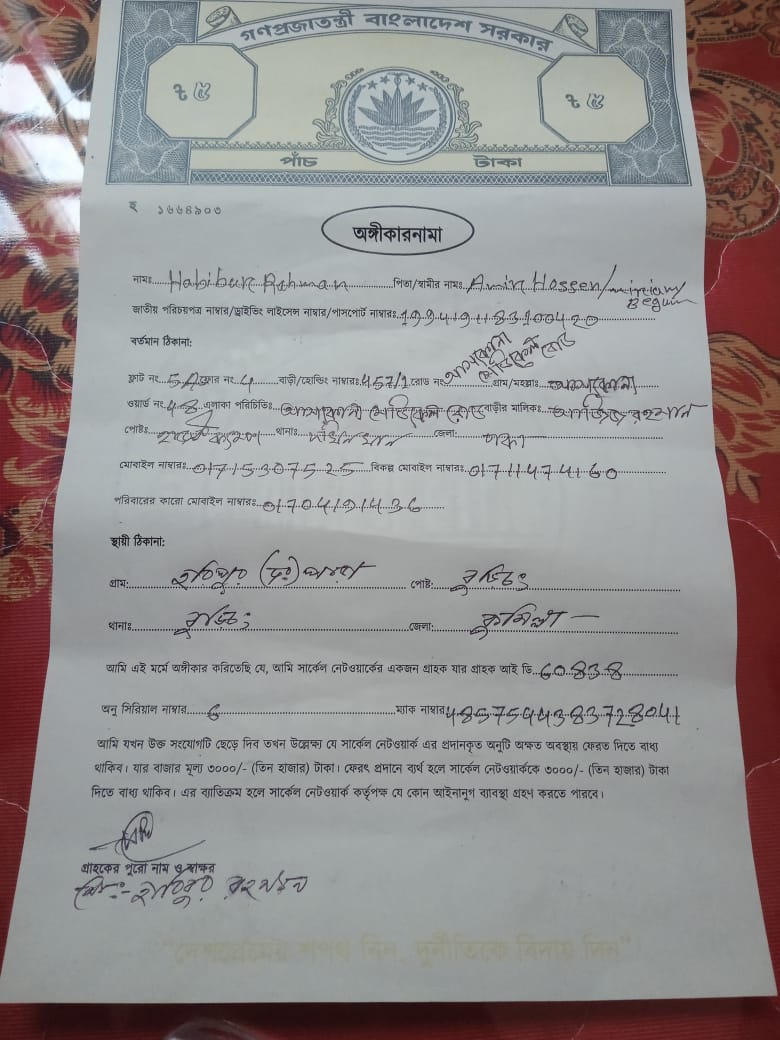 গণপ্রজাতন্ত্রী বাংলাদেশ সরকার
৳ ৫ ৳ ৫
পাঁচ টাকা
হ ১৬৬৪৯০৩
অঙ্গীকারনামা
নামঃ Habibur Rahman পিতা/স্বামীর নামঃ Amin Hossen/miriam Begum
জাতীয় পরিচয়পত্র নাম্বার/ড্রাইভিং লাইসেন্স নাম্বার/পাসপোর্ট নাম্বারঃ 1994191183100420
বর্তমান ঠিকানা:
আশকোনা মেডিকেল রোড
ফ্লাট নং 5A ফ্লোর নং 4 বাড়ী/হোল্ডিং নাম্বারঃ 457/1 রোড নং গ্রাম/মহল্লাঃ আশকোনা
ওয়ার্ড নং 48 এলাকা পরিচিতিঃ আশকোনা মেডিকেল রোড বাড়ীর মালিকঃ আজিজুর রহমান
পোষ্টঃ থানাঃ দক্ষিনখান জেলা: ঢাকা
মোবাইল নাম্বারঃ 01715307525 বিকল্প মোবাইল নাম্বারঃ 01711474160
পরিবারের কারো মোবাইল নাম্বারঃ 01704191436
স্থায়ী ঠিকানা:
গ্রাম: হরিপুর (দঃ) পাড়া পোষ্ট: বুড়িচং
থানাঃ বুড়িচং জেলা: কুমিল্লা
আমি এই মর্মে অঙ্গীকার করিতেছি যে, আমি সার্কেল নেটওয়ার্কের একজন গ্রাহক যার গ্রাহক আই ডি 60838
অনু সিরিয়াল নাম্বার 6 ম্যাক নাম্বার 4857544383728041
আমি যখন উক্ত সংযোগটি ছেড়ে দিব তখন উল্লেক্ষ্য যে সার্কেল নেটওয়ার্ক এর প্রদানকৃত অনুটি অক্ষত অবস্থায় ফেরত দিতে বাধ্য
থাকিব। যার বাজার মূল্য ৩০০০/- (তিন হাজার) টাকা। ফেরৎ প্রদানে ব্যর্থ হলে সার্কেল নেটওয়ার্ককে ৩০০০/- (তিন হাজার) টাকা
দিতে বাধ্য থাকিব। এর ব্যাতিক্রম হলে সার্কেল নেটওয়ার্ক কর্তৃপক্ষ যে কোন আইনানুগ ব্যাবস্থা গ্রহণ করতে পারবে।
গ্রাহকের পুরো নাম ও স্বাক্ষর
মোঃ- হাবিবুর রহমান
"দেশপ্রেমের শপথ নিন, দুর্নীতিকে বিদায় দিন"